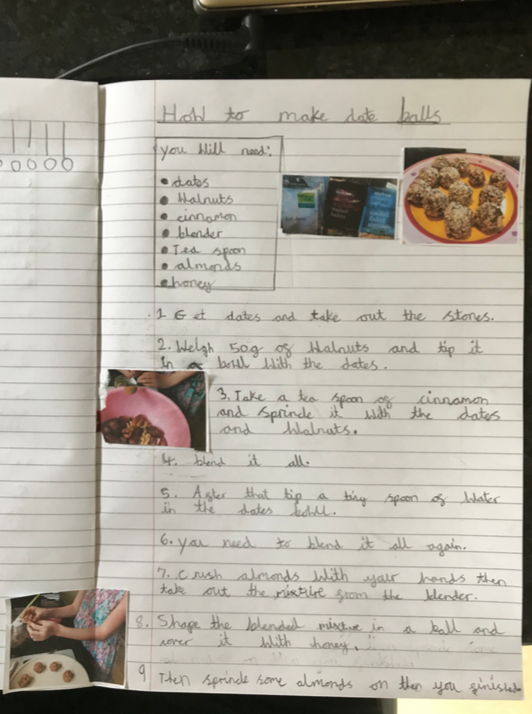 How to make date balls
you will need:
• dates
• walnuts
• cinnamon
• blender
• Tea spoon
• almonds
• honey
1 Get dates and take out the stones.
2. Weigh 50g of walnuts and tip it
in a bowl with the dates.
3. Take a tea spoon of cinnamon
and sprincle it with the dates
and walnuts.
4. blend it all.
5. After that tip a tiny spoon of water
in the dates bowl.
6. you need to blend it all again.
7. Crush almonds with your hands then
take out the mixture from the blender.
8. Shape the blended mixture in a ball and
cover it with honey.
9 Then sprincle some almonds on then you finished